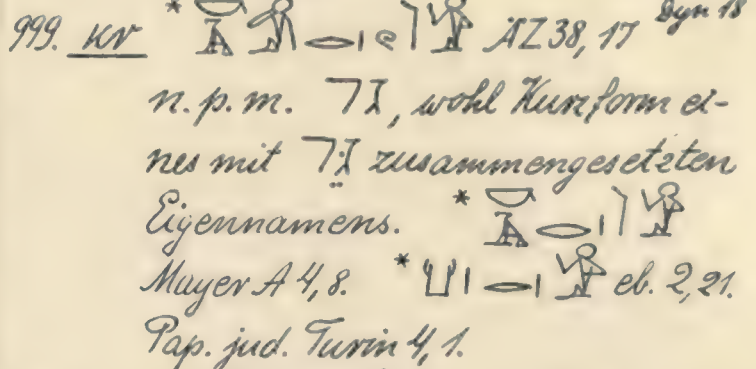 999. kr * ÄZ 38, 17 Dyn 18
n. p. m. גר, wohl Kurzform ei-
nes mit גֵּר zusammengesetzten
Eigennamens. *
Mayer A 4, 8. * eb. 2, 21.
Pap. jud. Turin 4, 1.